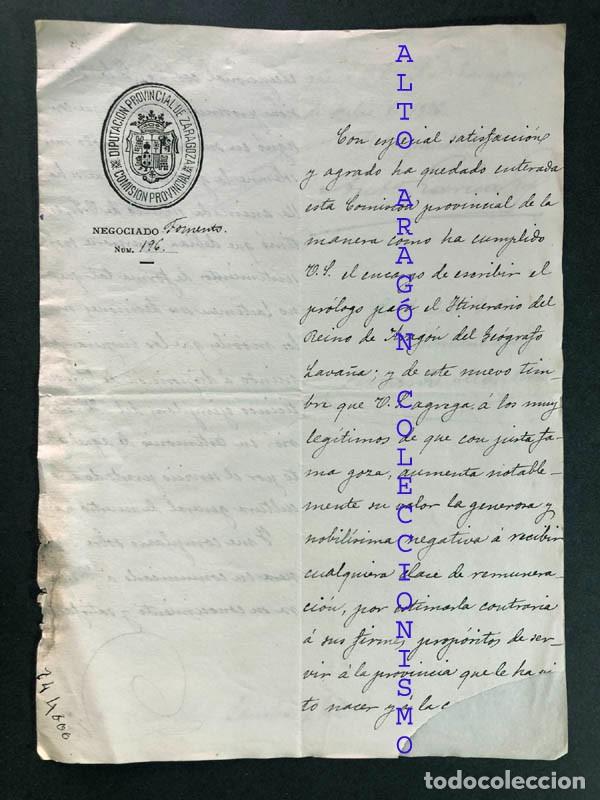 DIPUTACION PROVINCIAL DE ZARAGOZA
COMISION PROVINCIAL
NEGOCIADO Fomento.
NÚM. 196.
Con especial satisfacción
y agrado ha quedado enterada
esta Comisión provincial de la
manera como ha cumplido
V.S. el encargo de escribir el
prólogo para el Itinerario del
Reino de Aragón del Geógrafo
Lavaña; y de este nuevo tim-
bre que V.S. agrega á los muy
legítimos de que con justa fa-
ma goza, aumenta notable-
mente su valor la generosa y
nobilísima negativa á recibir
cualquiera clase de remunera-
ción, por estimarla contraria
á sus firmes propósitos de ser-
vir á la provincia que le ha vi
to nacer y á la c
ALTO ARAGÓN COLECCIONISMO
todocoleccion.net